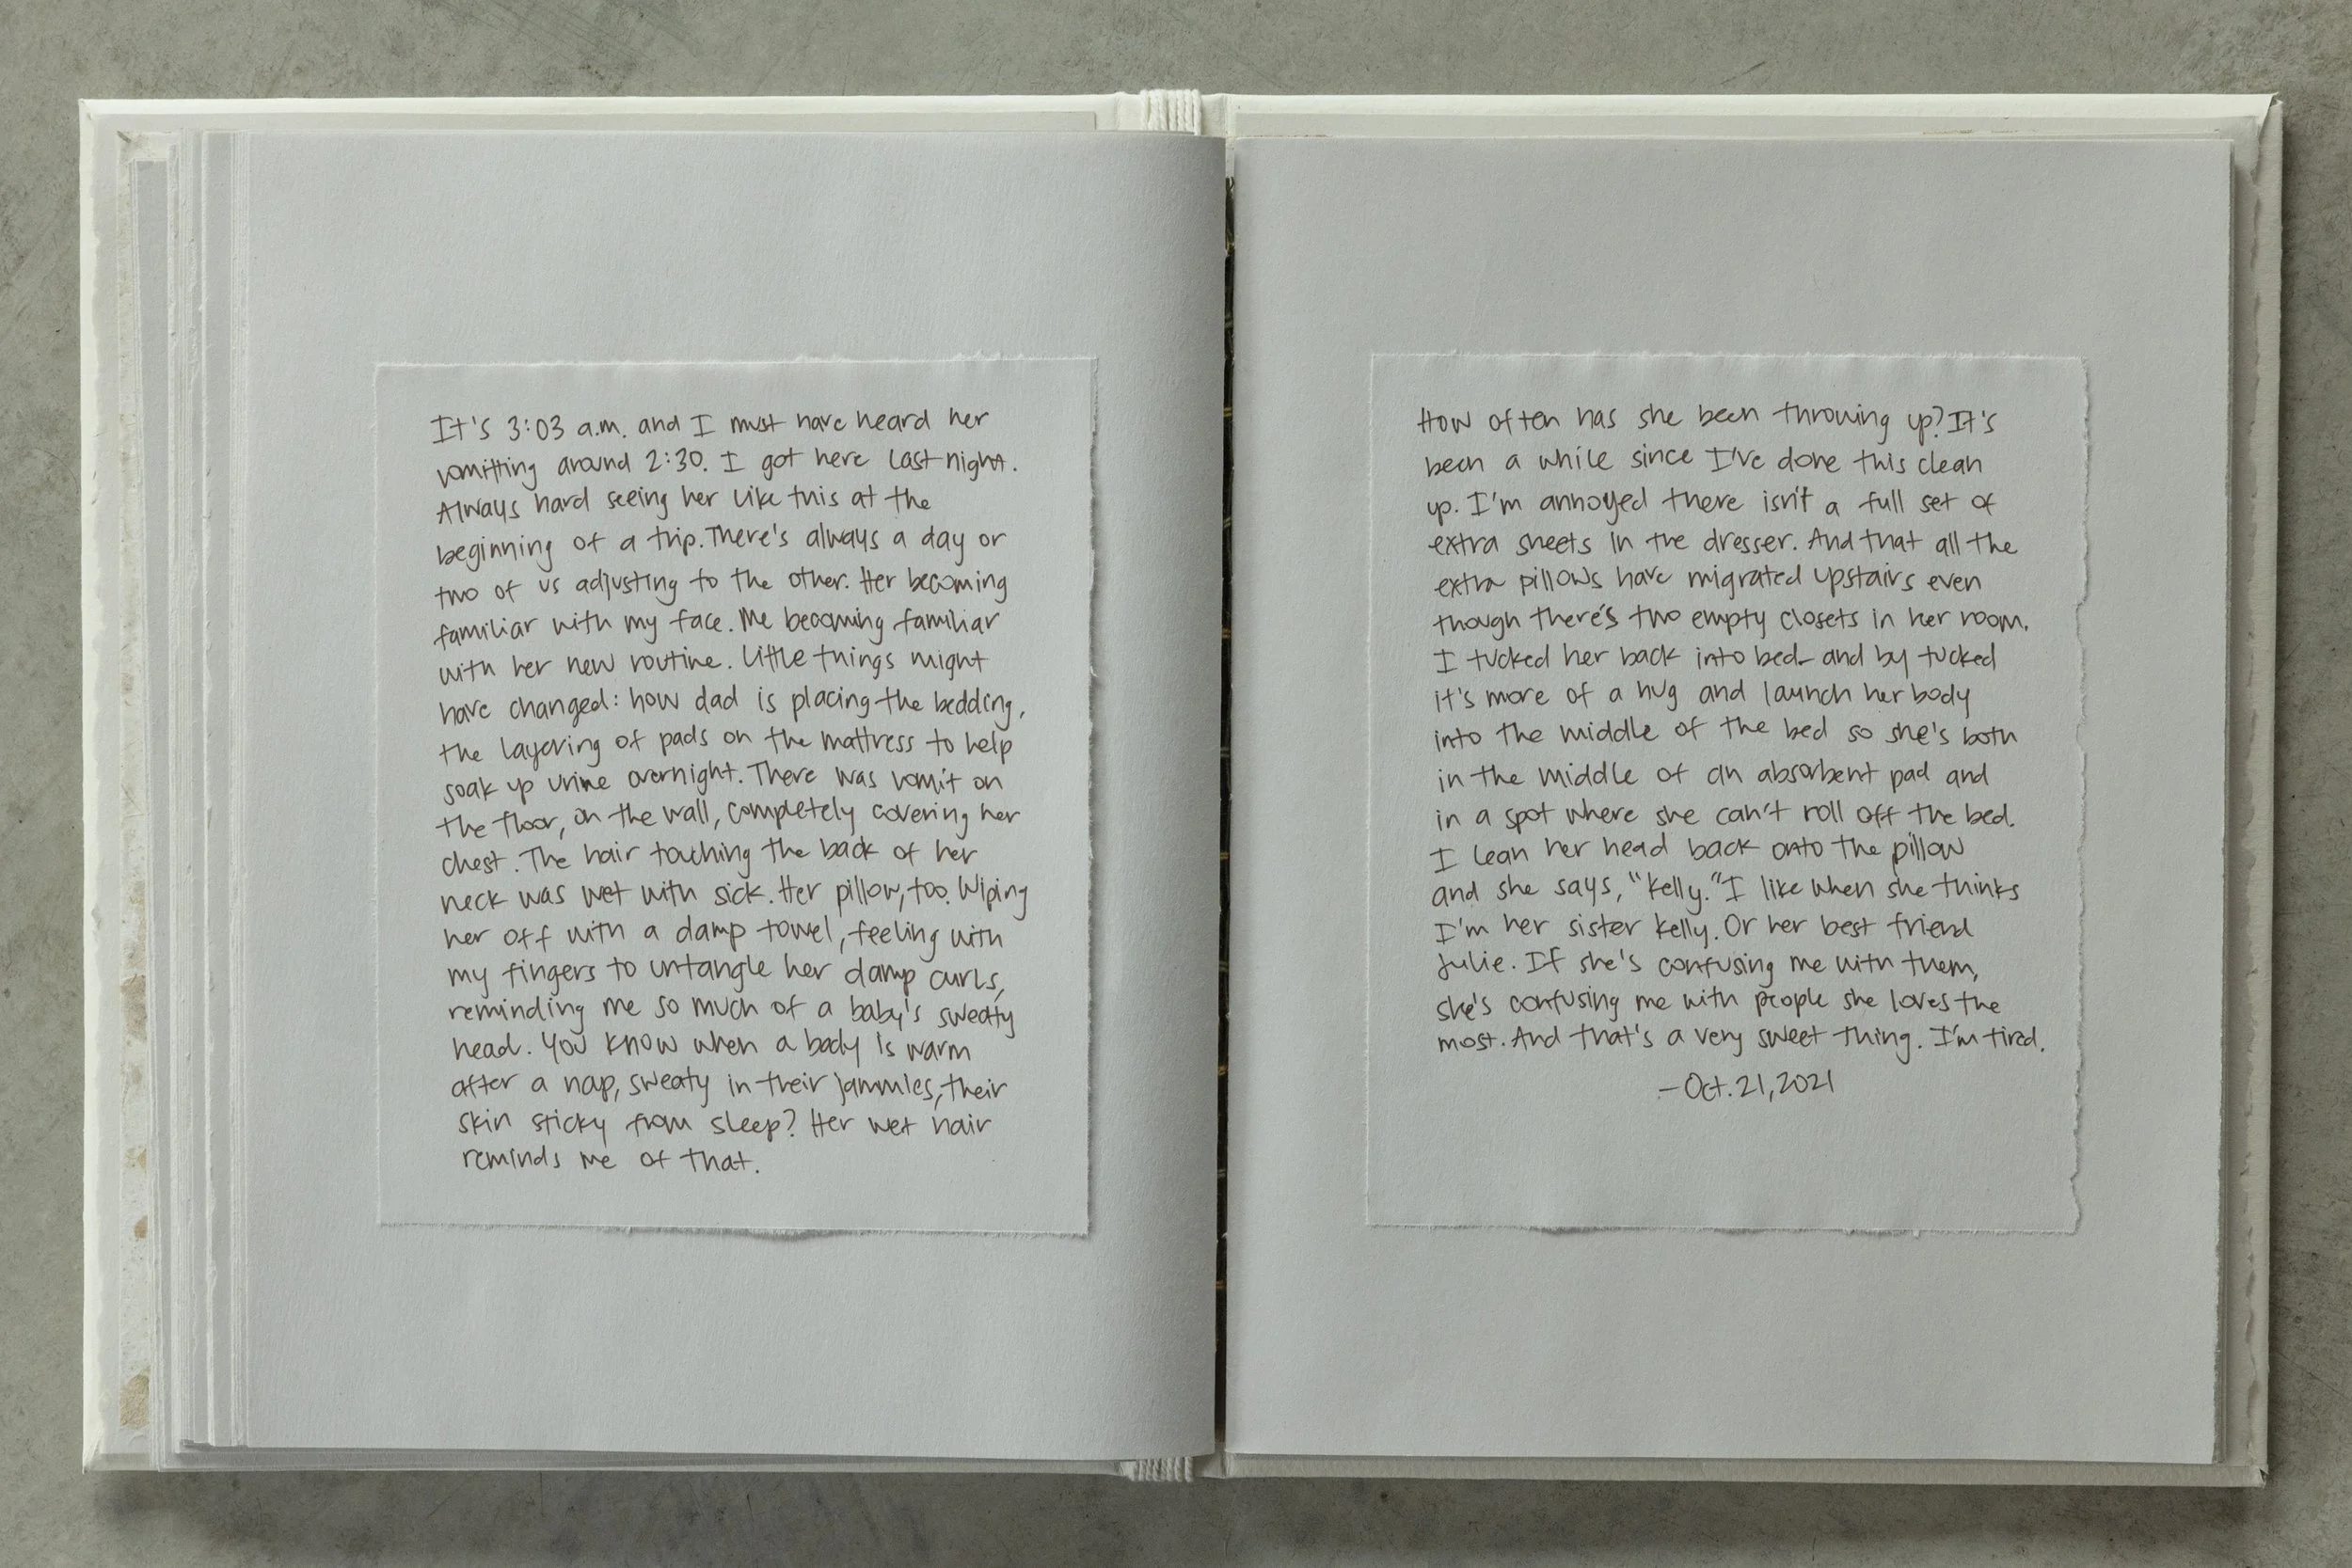 It's 3:03 a.m. and I must have heard her
vomitting around 2:30. I got here last night.
Always hard seeing her like this at the
beginning of a trip. There's always a day or
two of us adjusting to the other. Her becoming
familiar with my face. Me becoming familiar
with her new routine. Little things might
have changed: how dad is placing the bedding,
the layering of pads on the mattress to help
soak up urine overnight. There was vomit on
the floor, on the wall, completely covering her
chest. The hair touching the back of her
neck was wet with sick. Her pillow, too. Wiping
her off with a damp towel, feeling with
my fingers to untangle her damp curls,
reminding me so much of a baby's sweaty
head. You know when a body is warm
after a nap, sweaty in their jammies, their
skin sticky from sleep? Her wet hair
reminds me of that.
How often has she been throwing up? It's
been a while since I've done this clean
up. I'm annoyed there isn't a full set of
extra sheets in the dresser. And that all the
extra pillows have migrated upstairs even
though there's two empty closets in her room.
I tucked her back into bed - and by tucked
it's more of a hug and launch her body
into the middle of the bed so she's both
in the middle of an absorbent pad and
in a spot where she can't roll off the bed.
I lean her head back onto the pillow
and she says, "Kelly." I like when she thinks
I'm her sister Kelly. Or her best friend
Julie. If she's confusing me with them,
she's confusing me with people she loves the
most. And that's a very sweet thing. I'm tired.
- Oct. 21, 2021